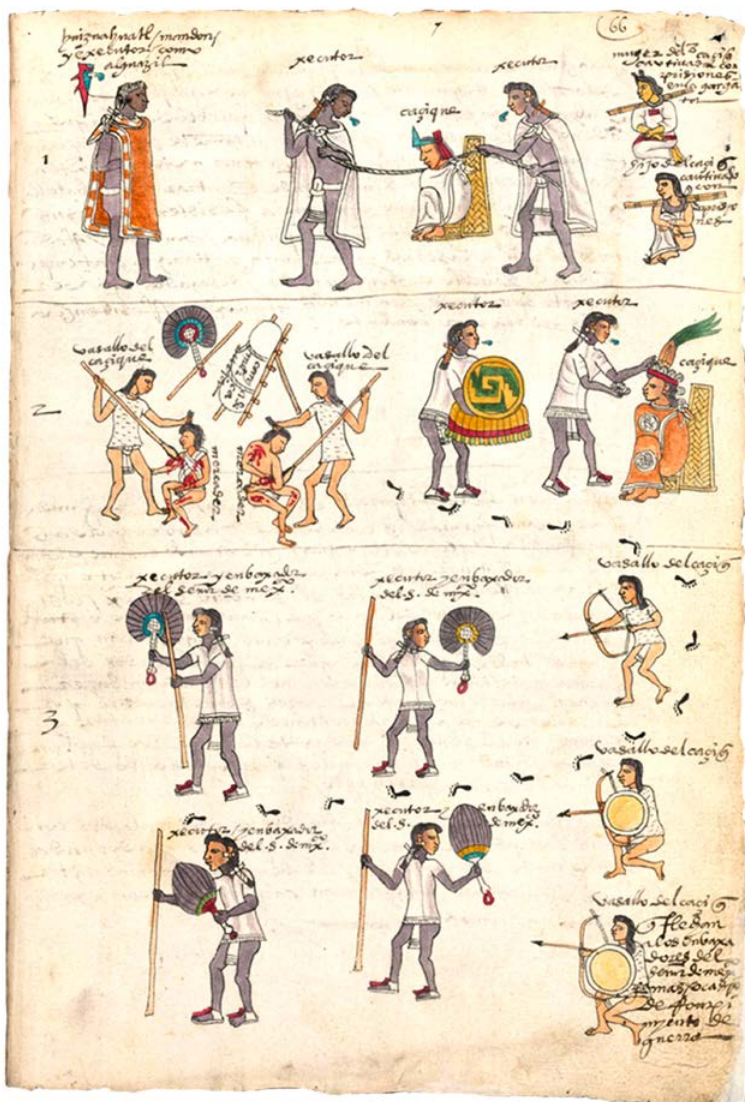 66
huiznahuatl / mandon /
y executor como
alguazil
xecutor
caçique
xecutor
muger del
caçiq
cautivada con
prisiones
en la gargan
ta
hijo del caçiq
cautivado
con
prisio
nes
1
2
vasallo del
caçique
vasallo del
caçique
mercader
mercader
xecutor
xecutor
caçique
3
xecutor y enbaxador
del señor de mexᶜᵒ.
xecutor y enbaxador
del s. de mexᶜᵒ.
vasallo del caçiq
vasallo del caçiq
xecutor / y enbaxador
del. s. de mexᶜᵒ.
xecutor y enbaxador
del. s. de mexᶜᵒ.
vasallo del caçiq
flechan
a los enbaxa
dores del
señor de mexᶜᵒ
de rompi
myento de
guerra